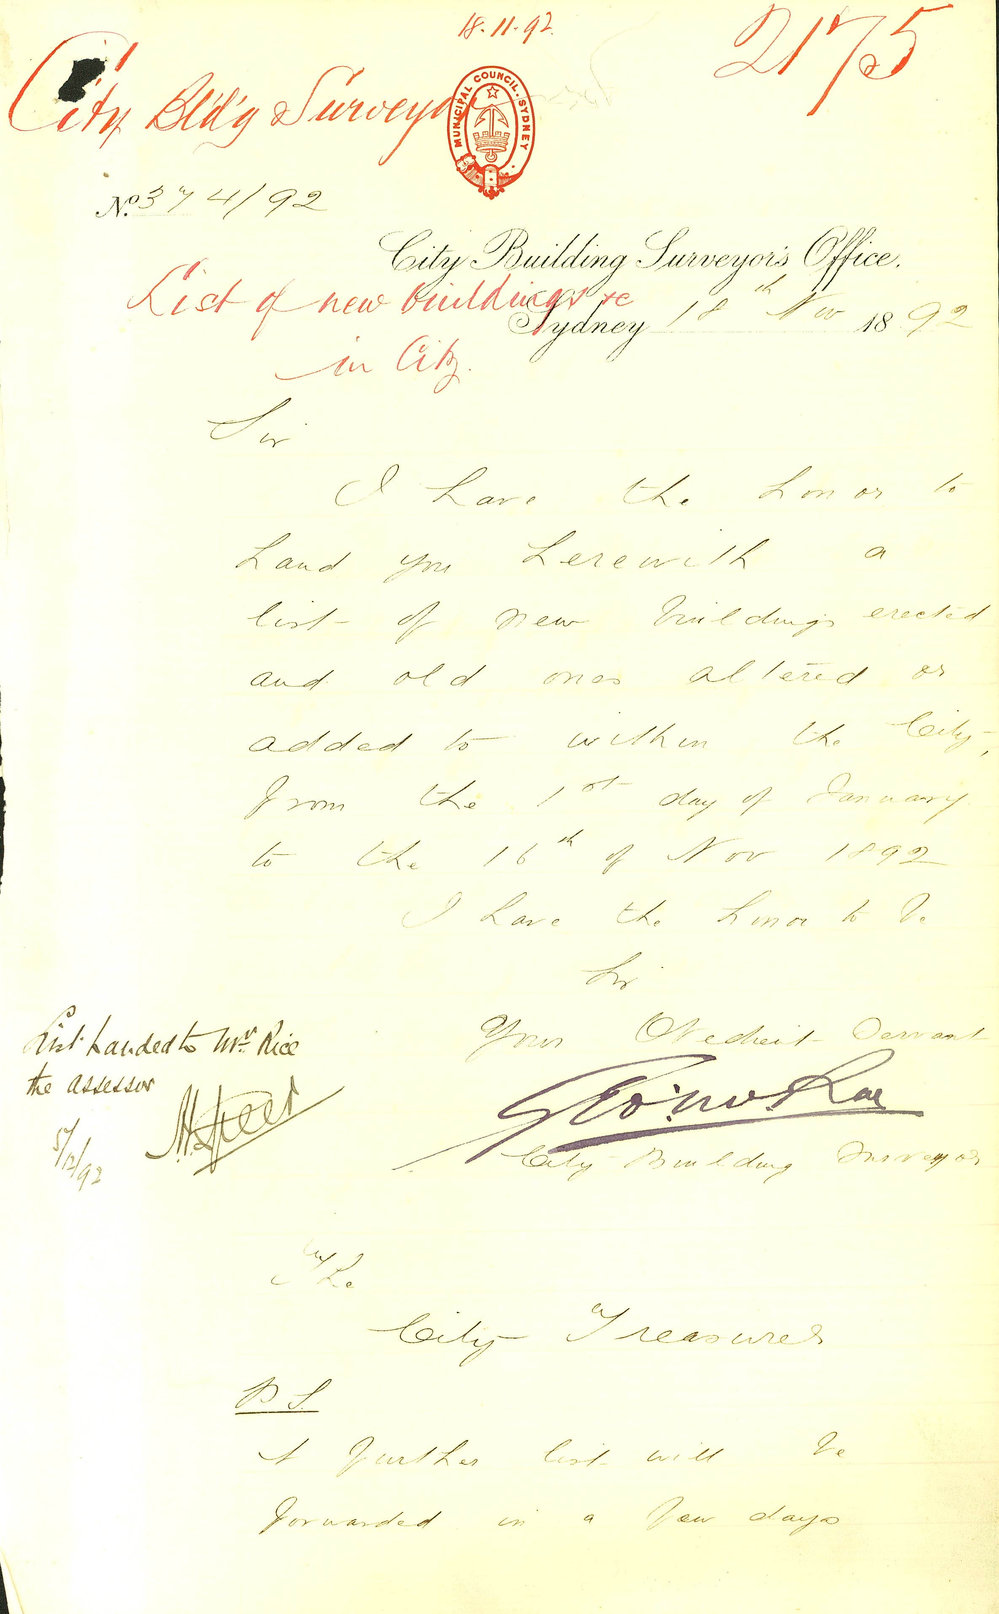 18.11.92.
2175
City Bld'g Surveyor
MUNICIPAL COUNCIL. SYDNEY
No. 374/92
City Building Surveyor's Office.
List of new buildings &c
Sydney 18th Nov 1892
in City.
Sir
I have the honor to
hand you herewith a
list of new buildings erected
and old ones altered or
added to within the City,
from the 1st day of January
to the 16th of Nov 1892
I have the honor to be
Sir
Your Obedient Servant
List handed to Mr. Rice
the assessor
Geo: McRae
5/12/92
City Building Surveyor
The
City Treasurer
P S
A further list will be
forwarded in a few days